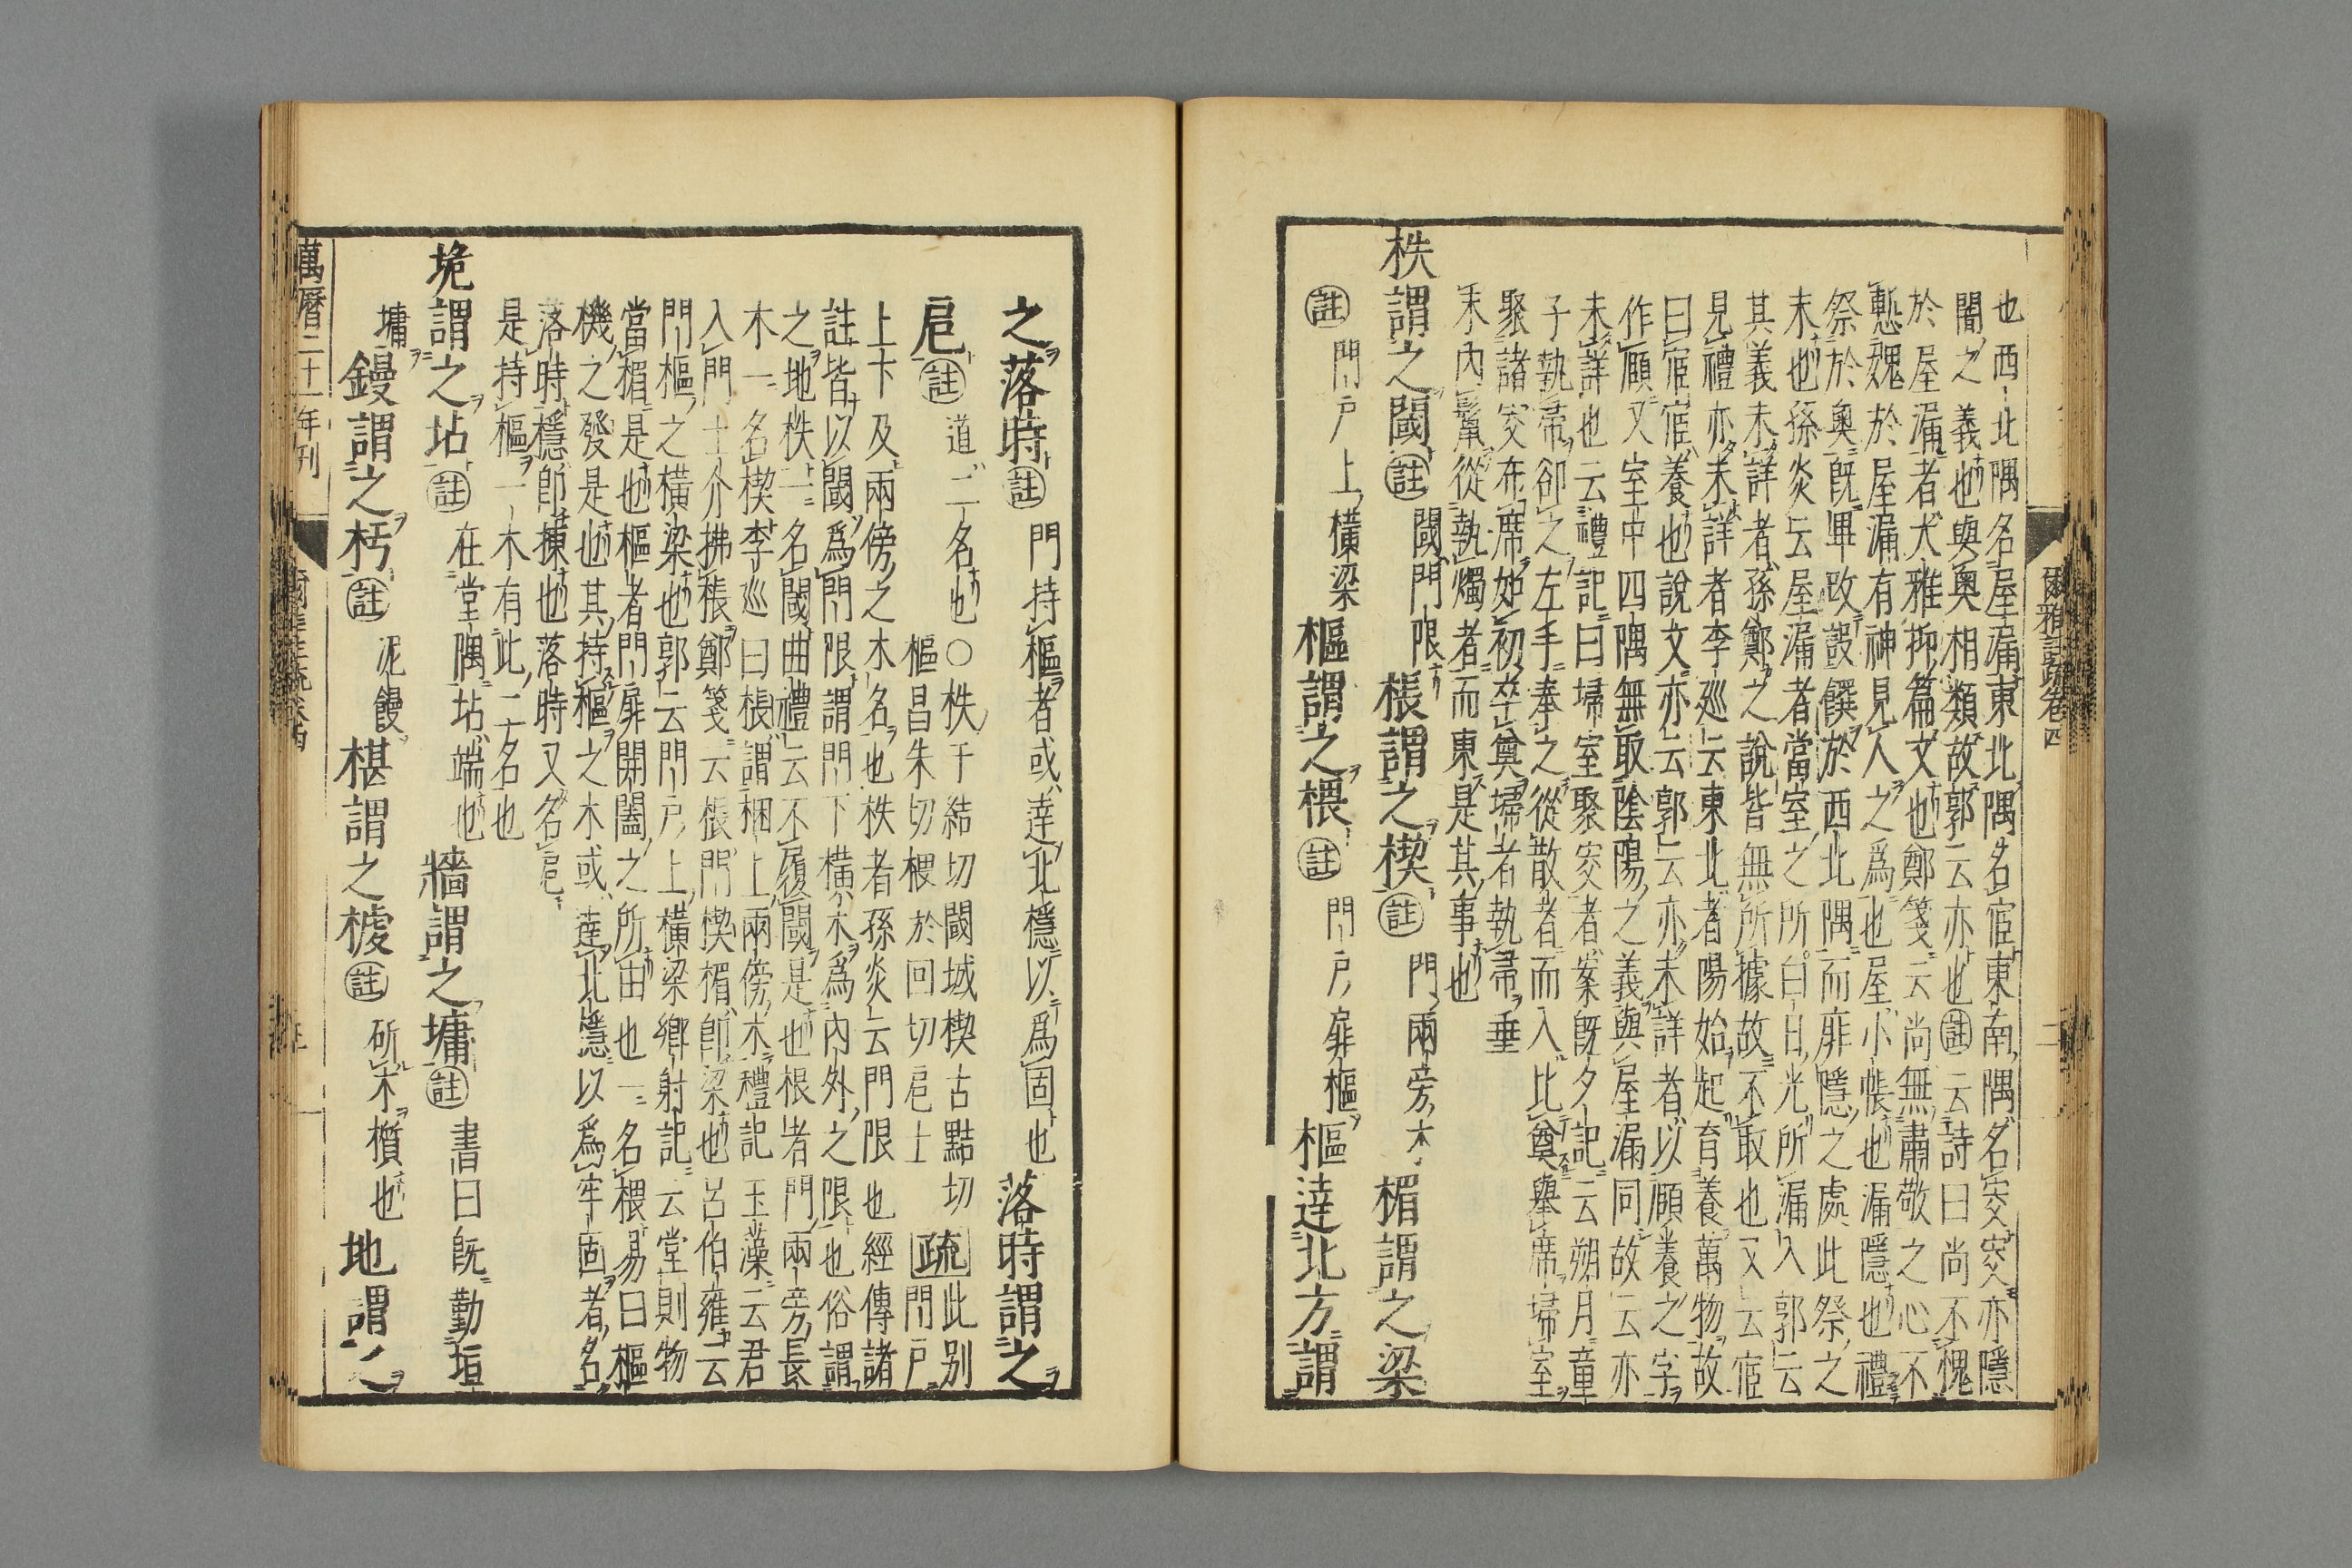 爾雅註疏卷四
也西北隅名屋漏東北隅名宧東南隅名窔窔亦隱
闇之義也與奥相類故郭云亦也註云詩曰尚不愧
於屋漏者大雅抑篇文也鄭箋云尚無肅敬之心不
慙媿於屋漏有神見人之爲也屋小帳也漏隱也禮
祭於奥旣畢改設饌於西北隅而厞隱之處此祭之
末也孫炎云屋漏者當室之所白日光所漏入郭云
其義未詳者孫鄭之說皆無所據故不取也又云宧
見禮亦未詳者李巡云東北者陽始起育養萬物故
曰宧宧養也說文亦云郭云亦未詳者以頤養之字
作頤又室中四隅無取陰陽之義與屋漏同故云亦
未詳也云禮記曰埽室聚窔者案旣夕記云朔月童
子執帚卻之左手奉之從散者而入比奠舉席埽室
聚諸窔布席如初卒奠埽者執帚垂
末內鬣從執燭者而東是其事也
柣謂之閾註閾門限棖謂之楔註門兩旁木楣謂之梁
註門戶上橫梁樞謂之椳註門戶扉樞樞達北方謂
之落時註門持樞者或達北穩以爲固也落時謂之
戹註道二名也○柣千結切閾域楔古黠切
樞昌朱切椳於回切戹士疏此別門戶
上下及兩傍之木名也柣者孫炎云門限也經傳諸
註皆以閾爲門限謂門下橫木爲內外之限也俗謂
之地柣一名閾曲禮云不履閾是也棖者門兩旁長
木一名楔李巡曰棖謂梱上兩傍木禮記玉藻云君
入門士介拂棖鄭箋云棖門楔楣卽梁也呂伯雍云
門樞之橫梁也郭云門戶上橫梁鄉射記云堂則物
當楣是也樞者門扉開闔之所由也一名椳易曰樞
機之發是也其持樞之木或達北隱以爲牢固者名
落時穩卽棟也落時又名戹
是持樞一木有此二名也
垝謂之坫註在堂隅坫端也牆謂之墉註書曰旣勤垣
墉鏝謂之杇註泥鏝椹謂之榩註斫木櫍也地謂之
萬曆二十一年刊
爾雅註疏卷四